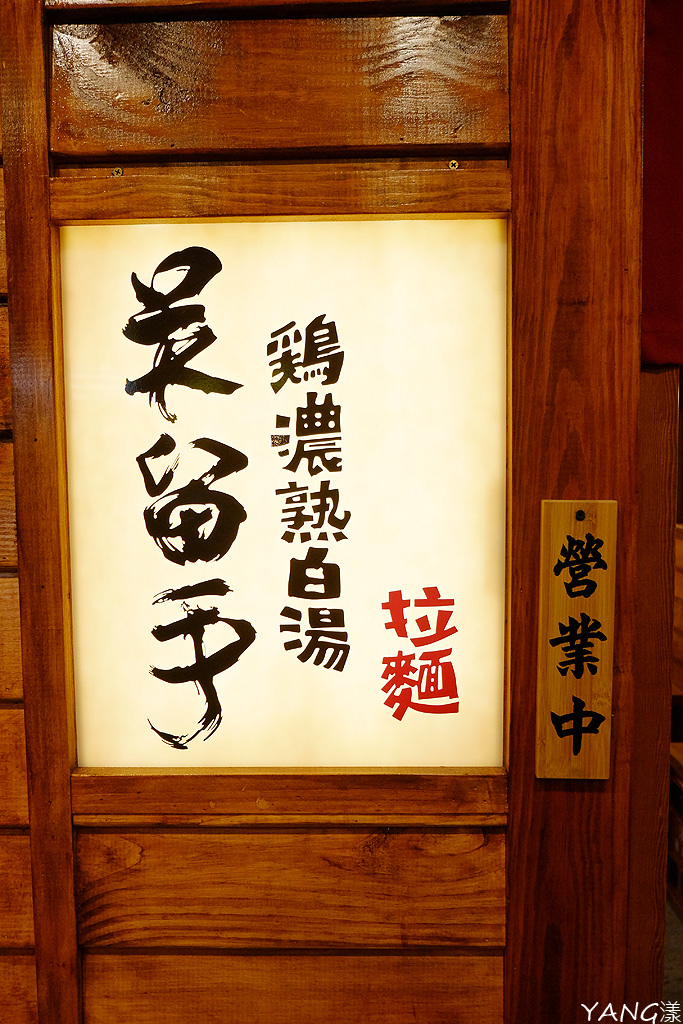 菜留手
鶏濃熟白湯
拉麵
營業中
YANG漾